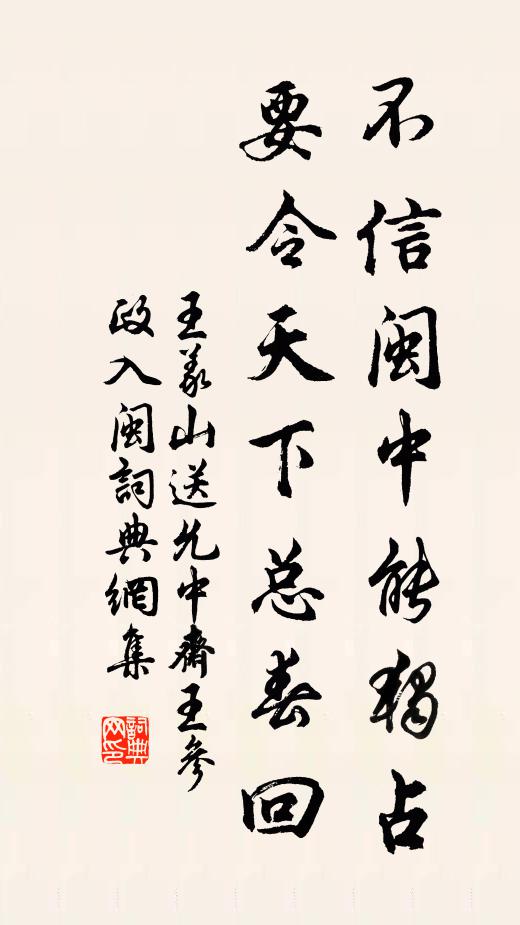 不信闽中能独占
要令天下总春回
王义山送允中斋王参
政入闽詞典網集
詞典网印